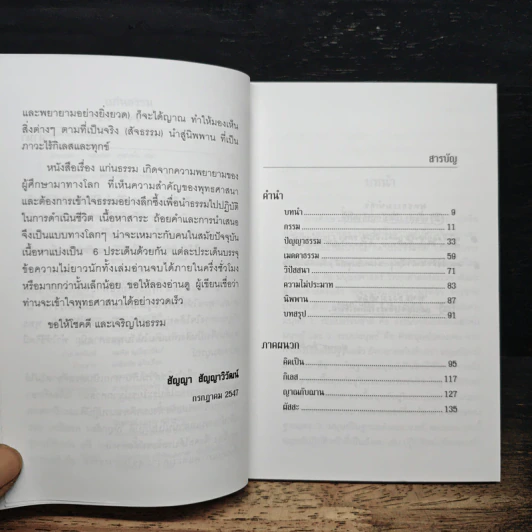 และพยายามอย่างยิ่งยวด) ก็จะได้ญาณ ทำให้มองเห็น
สิ่งต่างๆ ตามที่เป็นจริง (สัจธรรม) นำสู่นิพพาน ที่เป็น
ภาวะไร้กิเลสและทุกข์
หนังสือเรื่อง แก่นธรรม เกิดจากความพยายามของ
ผู้ศึกษามาทางโลก ที่เห็นความสำคัญของพุทธศาสนา
และต้องการเข้าใจธรรมอย่างลึกซึ้งเพื่อนำธรรมไปปฏิบัติ
ในการดำเนินชีวิต เนื้อหาสาระ ถ้อยคำและการนำเสนอ
จึงเป็นแบบทางโลกๆ น่าจะเหมาะกับคนในสมัยปัจจุบัน
เนื้อหาแบ่งเป็น 6 ประเด็นด้วยกัน แต่ละประเด็นบรรจุ
ข้อความไม่ยาวนักทั้งเล่มอ่านจบได้ภายในครึ่งชั่วโมง
หรือมากกว่านั้นเล็กน้อย ขอให้ลองอ่านดู ผู้เขียนเชื่อว่า
ท่านจะเข้าใจพุทธศาสนาได้อย่างรวดเร็ว
ขอให้โชคดี และเจริญในธรรม
สัญญา สัญญาวิวัฒน์
กรกฎาคม 2547
สารบัญ
คำนำ
บทนำ 9
กรรม 11
ปัญญาธรรม 33
เมตตาธรรม 59
วิปัสสนา 71
ความไม่ประมาท 83
นิพพาน 87
บทสรุป 91
ภาคผนวก
คิดเป็น 95
กิเลส 117
ญาณกับฌาน 127
ผัสสะ 135